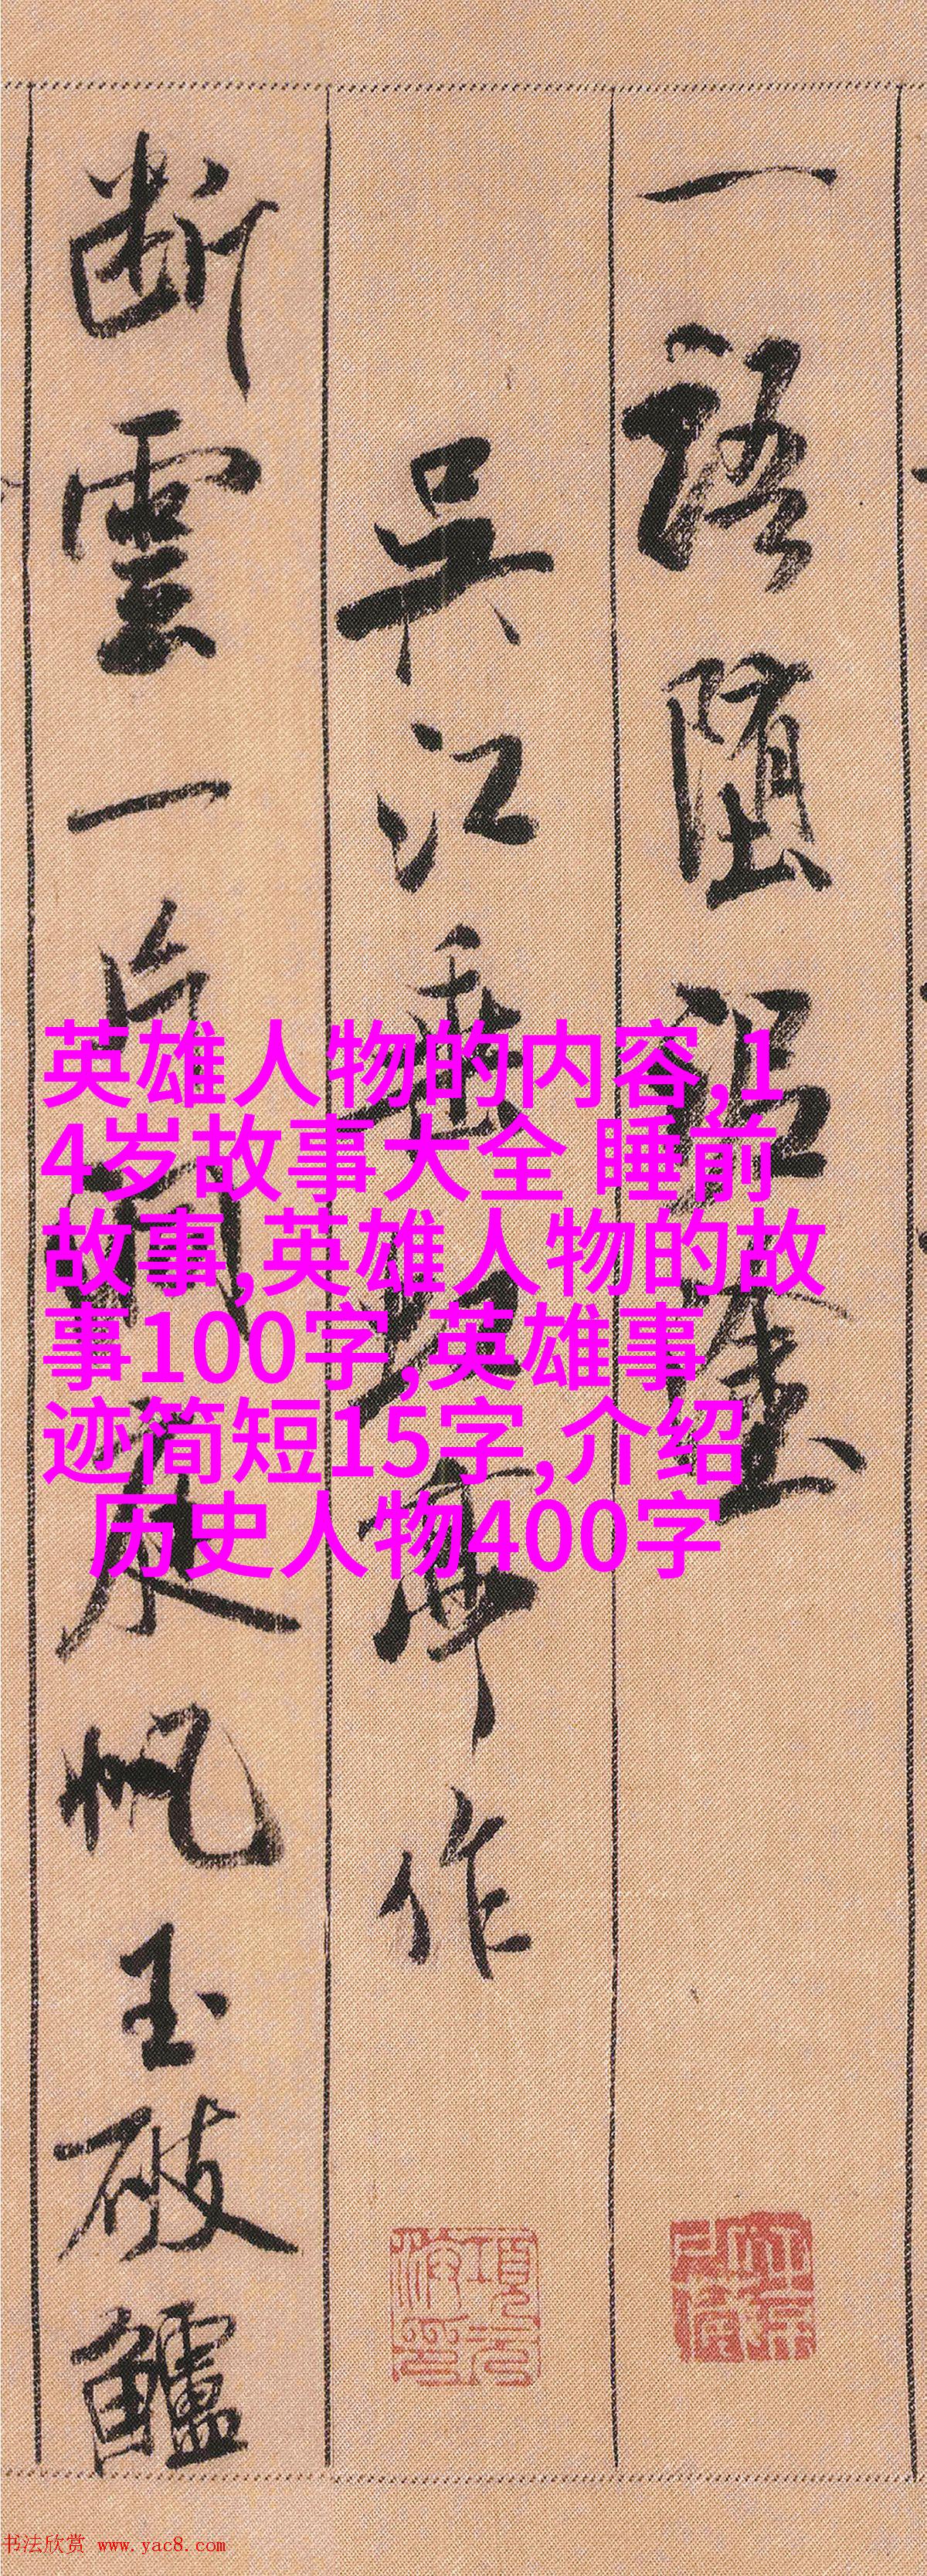 一語墮泥塗
吴江垂虹亭作
断雲一片洞庭帆玉破鱸
英雄人物的内容,1
4岁故事大全 睡前
故事,英雄人物的故
事100字,英雄事
迹简短15字,介绍
历史人物400字
項元汴印
书法欣赏 www.yac8.com